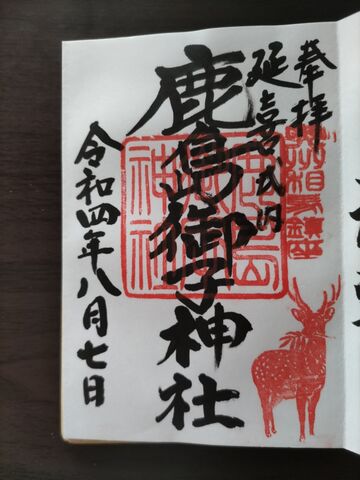 奉拝
延喜式内
鹿島御子神社
令和四年八月七日